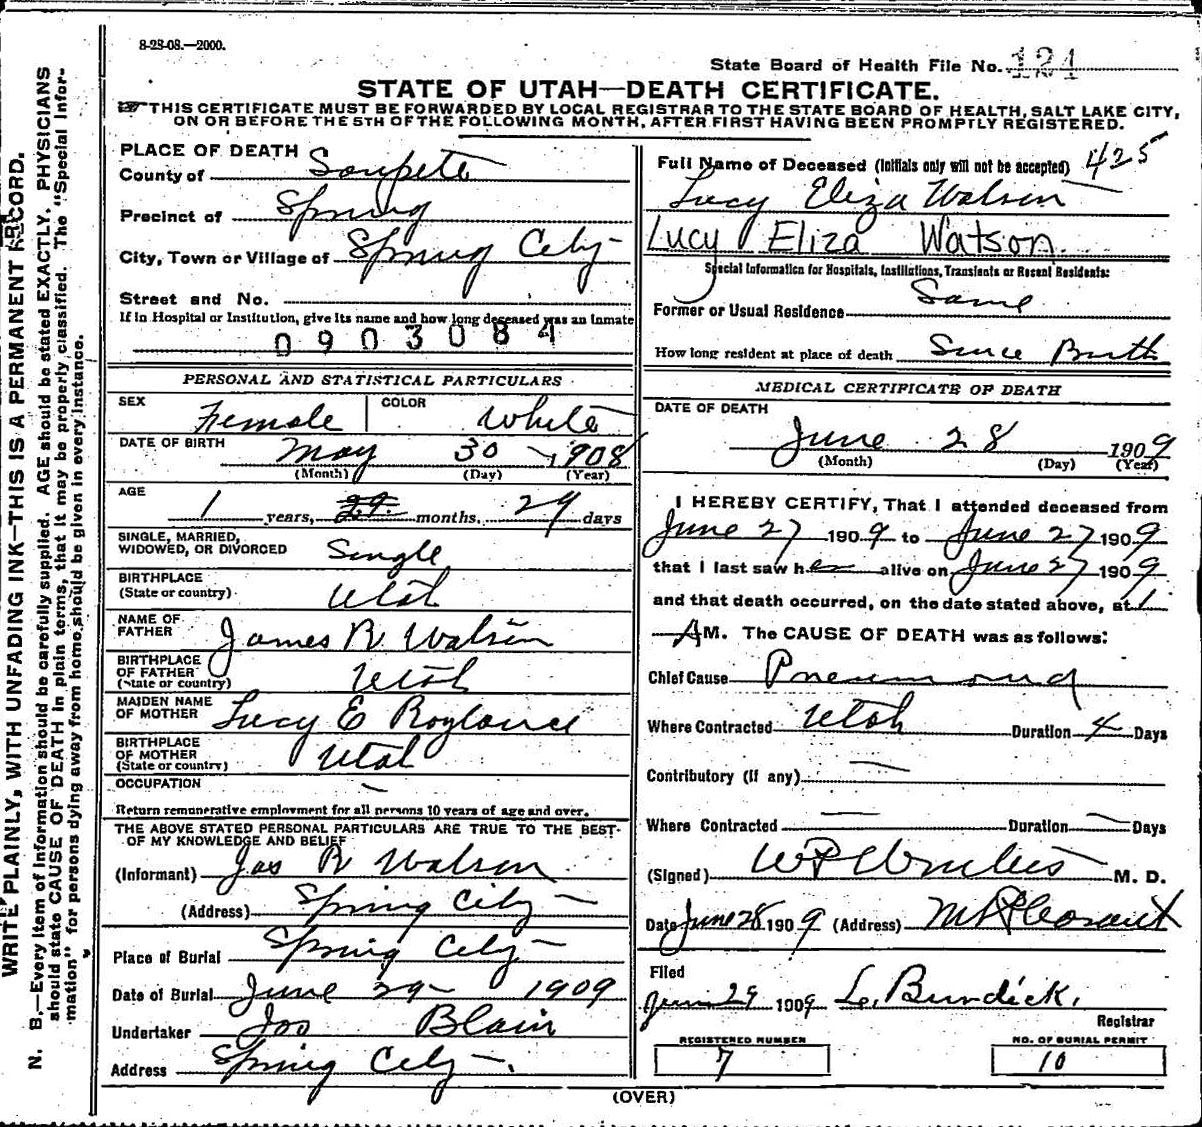 8-28-08.—2000.
State Board of Health File No. 124
STATE OF UTAH—DEATH CERTIFICATE.
THIS CERTIFICATE MUST BE FORWARDED BY LOCAL REGISTRAR TO THE STATE BOARD OF HEALTH, SALT LAKE CITY,
ON OR BEFORE THE 5TH OF THE FOLLOWING MONTH, AFTER FIRST HAVING BEEN PROMPTLY REGISTERED.
PLACE OF DEATH
County of Sanpete
Precinct of Spring
City, Town or Village of Spring City
Street and No.
If in Hospital or Institution, give its name and how long deceased was an inmate
0903084
PERSONAL AND STATISTICAL PARTICULARS
SEX Female COLOR White
DATE OF BIRTH May 30 1908
(Month) (Day) (Year)
AGE
1 years, 29 months, 29 days
SINGLE, MARRIED,
WIDOWED, OR DIVORCED Single
BIRTHPLACE
(State or country) Utah
NAME OF
FATHER James R Watson
BIRTHPLACE
OF FATHER
(State or country) Utah
MAIDEN NAME
OF MOTHER Lucy E Roylance
BIRTHPLACE
OF MOTHER
(State or country) Utah
OCCUPATION —
Return remunerative employment for all persons 10 years of age and over.
THE ABOVE STATED PERSONAL PARTICULARS ARE TRUE TO THE BEST
OF MY KNOWLEDGE AND BELIEF
(Informant) Jas R Watson
(Address) Spring City
Place of Burial Spring City
Date of Burial June 29 1909
Undertaker Jos Blain
Address Spring City
Full Name of Deceased (Initials only will not be accepted) 425
Lucy Eliza Watson
Lucy Eliza Watson
Special Information for Hospitals, Institutions, Transients or Recent Residents:
Former or Usual Residence Same
How long resident at place of death Since Birth
MEDICAL CERTIFICATE OF DEATH
DATE OF DEATH
June 28 1909
(Month) (Day) (Year)
I HEREBY CERTIFY, That I attended deceased from
June 27 1909 to June 27 1909
that I last saw her alive on June 27 1909
and that death occurred, on the date stated above, at 1
AM. The CAUSE OF DEATH was as follows:
Chief Cause Pneumonia
Where Contracted Utah Duration 4 Days
Contributory (if any) —
Where Contracted — Duration — Days
(Signed) M. D.
Date June 28 1909 (Address) Mt Pleasant
Filed
June 29 1909 L. Burdick,
Registrar
REGISTERED NUMBER
7
NO. OF BURIAL PERMIT
10
(OVER)
WRITE PLAINLY, WITH UNFADING INK—THIS IS A PERMANENT RECORD.
N. B.—Every item of information should be carefully supplied. AGE should be stated EXACTLY. PHYSICIANS
should state CAUSE OF DEATH in plain terms, that it may be properly classified. The "Special Infor-
mation" for persons dying away from home should be given in every instance.